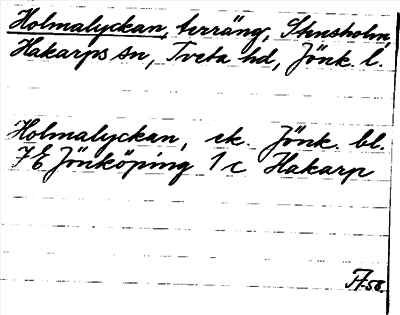 Holmalyckan, terräng, Stensholm,
Hakarps sn, Tveta hd, Jönk. l.
Holmalyckan, ek. Jönk. bl.
7 E Jönköping 1 c Hakarp